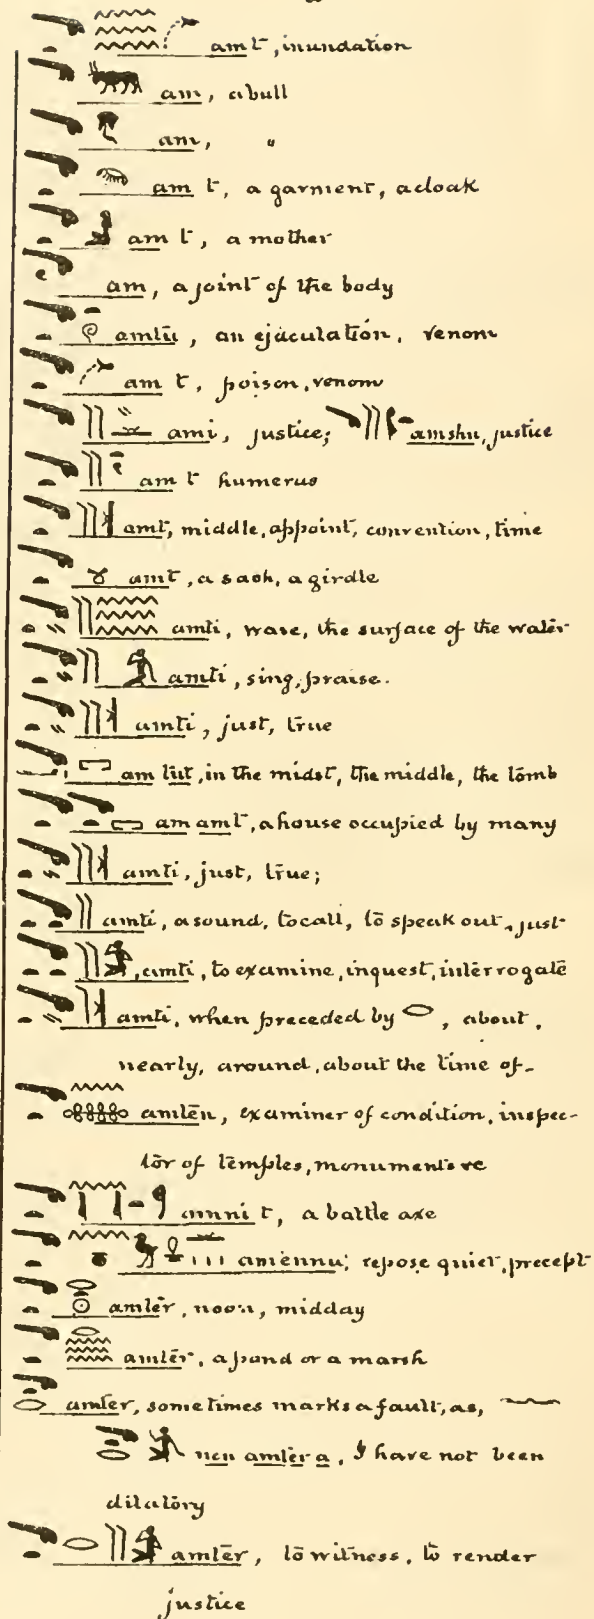 am t, inundation
am, a bull
am, "
am t, a garment, a cloak
am t, a mother
am, a joint of the body
amtu, an ejaculation, venom
am t, poison, venom
ami, justice; amshu, justice
am t humerus
amt, middle, appoint, convention, time
amt, a sash, a girdle
amti, wave, the surface of the water
amti, sing, praise.
amti, just, true
am tut, in the midst, the middle, the tomb
am amt, a house occupied by many
amti, just, true;
amti, a sound, to call, to speak out, just
amti, to examine, inquest, interrogate
amti, when preceded by , about,
nearly, around, about the time of-
amten, examiner of condition, inspec-
tor of temples, monuments &c
amni t, a battle axe
amennu; repose quiet, precept
amter, noon, midday
amter, a pond or a marsh
amter, sometimes marks a fault, as,
nen amter a, I have not been
dilatory
amter, to witness, to render
justice